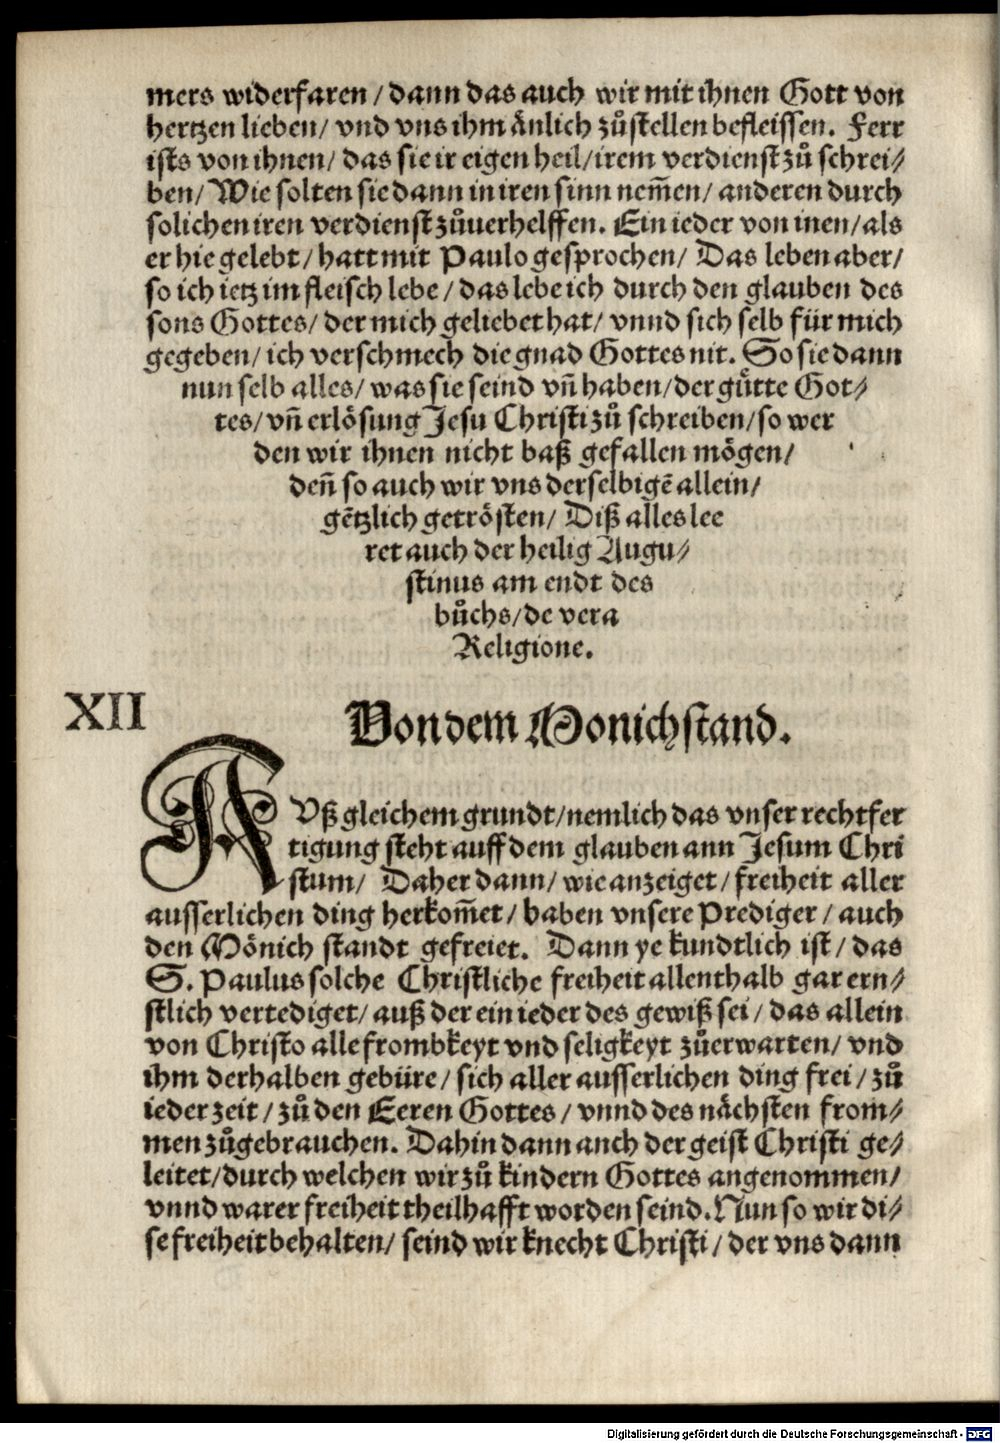 mers widerfaren / dann das auch wir mit ihnen Gott von
hertzen lieben / vnd vns ihm änlich zůstellen befleissen. Ferr
ists von ihnen / das sie ir eigen heil / irem verdienst zů schrei⸗
ben / Wie solten sie dann in iren sinn nem̄en / anderen durch
solichen iren verdienst zůuerhelffen. Ein ieder von inen / als
er hie gelebt / hatt mit Paulo gesprochen / Das leben aber /
so ich ietz im fleisch lebe / das lebe ich durch den glauben des
sons Gottes / der mich geliebet hat / vnnd sich selb für mich
gegeben / ich verschmech die gnad Gottes nit. So sie dann
nun selb alles / was sie seind vn̄ haben / der gůtte Got⸗
tes / vn̄ erlösung Jesu Christi zů schreiben / so wer
den wir ihnen nicht baß gefallen mögen /
den̄ so auch wir vns derselbigē allein /
gētzlich getrösten / Diß alles lee
ret auch der heilig Augu⸗
stinus am endt des
bůchs / de vera
Religione.
XII
Von dem Monichstand.
AVß gleichem grundt / nemlich das vnser rechtfer
tigung steht auff dem glauben ann Jesum Chri
stum / Daher dann / wie anzeiget / freiheit aller
ausserlichen ding herkom̄et / haben vnsere Prediger / auch
den Mönich standt gefreiet. Dann ye kundtlich ist / das
S. Paulus solche Christliche freiheit allenthalb gar ern⸗
stlich vertediget / auß der ein ieder des gewiß sei / das allein
von Christo alle frombkeyt vnd seligkeyt zůerwarten / vnd
ihm derhalben gebüre / sich aller ausserlichen ding frei / zů
ieder zeit / zů den Eeren Gottes / vnnd des nächsten from⸗
men zůgebrauchen. Dahin dann auch der geist Christi ge⸗
leitet / durch welchen wir zů kindern Gottes angenommen /
vnnd warer freiheit theilhafft worden seind. Nun so wir di⸗
se freiheit behalten / seind wir knecht Christi / der vns dann
Digitalisierung gefördert durch die Deutsche Forschungsgemeinschaft - DFG